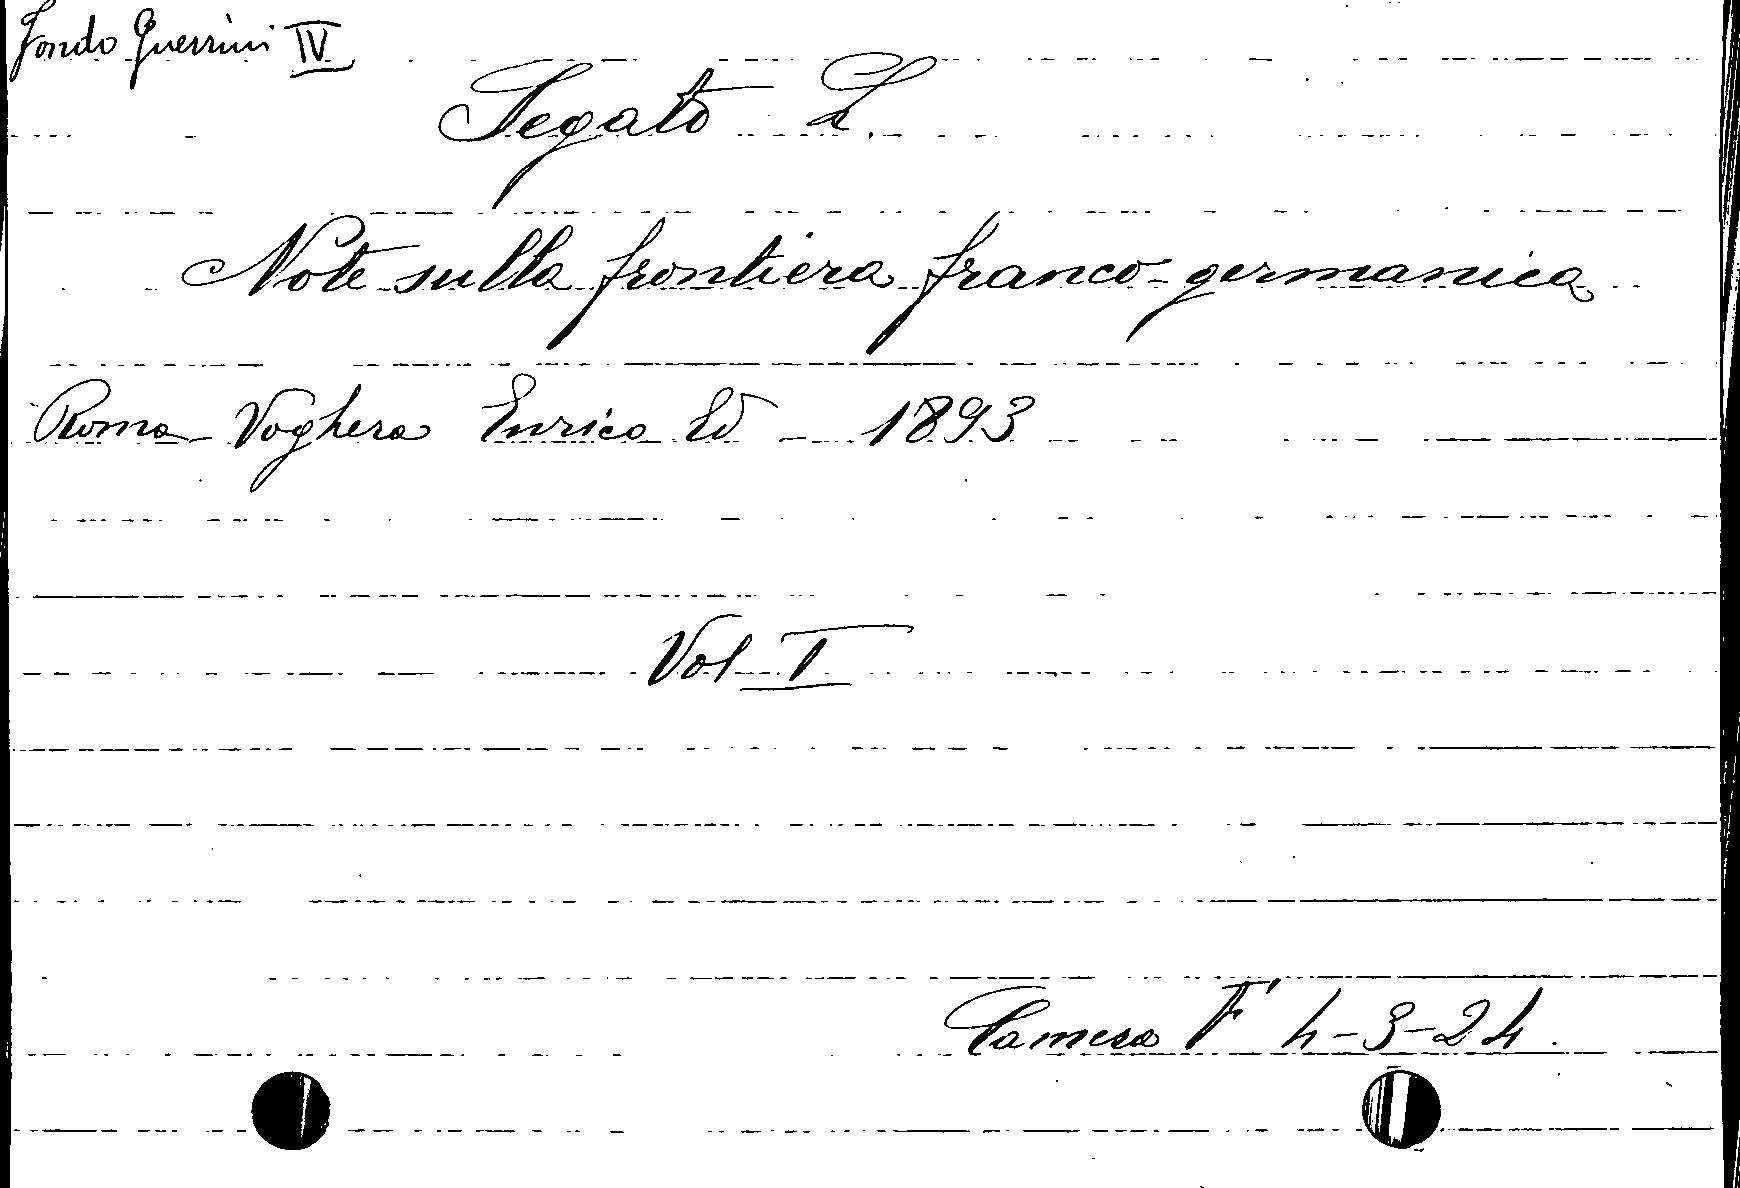 Fondo Guerrini IV
Segato L.
Note sulla frontiera franco-germanica
Roma - Voghera Enrico Ed - 1893
Vol I
Camera F' 4-3-24.